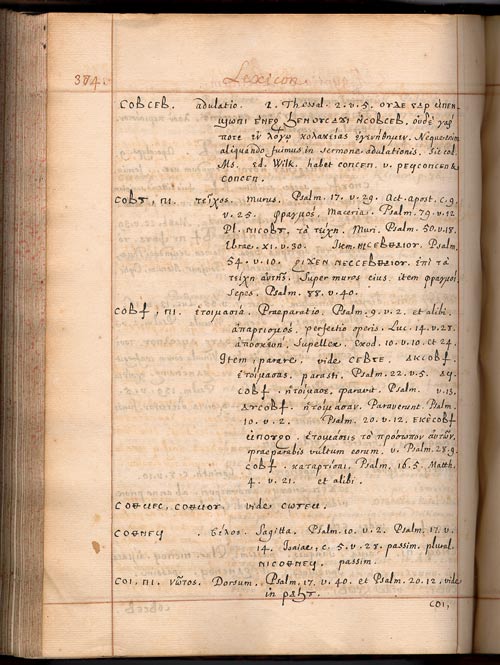 374. Lexicon
ⲥⲟⲃⲥⲉⲃ. adulatio. 1. Thessal. 2. v. 5. ⲟⲩⲇⲉ ⲅⲁⲣ ⲙ̇ⲡⲉⲛ-
ϣⲱⲡⲓ ⲉⲛⲉϩ ϧⲉⲛⲟⲩⲥⲁϫⲓ ⲛ̇ⲥⲟⲃⲥⲉⲃ. οὐδὲ γάρ
ποτε ἐν λόγῳ κολακείας ἐγενήθημεν. Neque enim
aliquando fuimus in sermone adulationis. Sic col.
Ms. Ed. Wilk. habet ⲥⲟⲛⲥⲉⲛ. v. ⲣⲉϥⲥⲟⲛⲥⲉⲛ &
ⲥⲟⲛⲥⲉⲛ.
ⲥⲟⲃⲧ, ⲡⲓ. τεῖχος. Murus. Psalm. 17. v. 29. Act. apost. c. 9.
v. 25. φραγμός. Maceria. Psalm. 79. v. 12
Pl. ⲛⲓⲥⲟⲃⲧ. τὰ τείχη. Muri. Psalm. 50. v. 18.
Ebrae. XI. v. 30. Item. ⲛⲓⲥⲉⲃⲑⲁⲓⲟⲩ. Psalm.
54. v. 10. ϩⲓϫⲉⲛ ⲛⲉⲥⲥⲉⲃⲑⲁⲓⲟⲩ. ἐπὶ τὰ
τείχη αὐτῆς. Super muros eius. item φραγμοί.
sepes. Psalm. 88. v. 40.
ⲥⲟⲃϯ, ⲡⲓ. ἑτοιμασία. Praeparatio. Psalm. 9. v. 2. et alibi.
ἀπαρτισμός. perfectio operis. Luc. 14. v. 28.
Supellex. Exod. 10. v. 10. et 24.
Item, parare. vide ⲥⲉⲃⲧⲉ. ⲁⲕⲥⲟⲃϯ.
ἑτοίμασας. parasti. Psalm. 22. v. 5. ⲁϥ-
ⲥⲟⲃϯ. ἡτοίμασε. paravit. Psalm. v. 13.
ⲁⲩⲥⲟⲃϯ. ἡτοίμασαν. Paraverunt. Psalm.
10. v. 2. Psalm. 20. v. 12. ⲉⲕⲉⲥⲟⲃϯ
ⲙ̇ⲡⲟⲩϩⲟ. ἑτοιμάσεις τὸ πρόσωπον αὐτῶν.
praeparabis vultum eorum. v. Psalm. 28. 9.
ⲥⲟⲃϯ. καταρτίσαι. Psalm. 16. 5. Matth.
4. v. 21. et alibi.
ⲥⲟⲑⲙⲉⲥ, ⲥⲟⲑⲙⲟⲩ. vide ⲥⲱⲧⲉⲙ.
ⲥⲟⲑⲛⲉϥ. βέλος. Sagitta. Psalm. 10. v. 2. Psalm. 17. v.
14. Isaiae, c. 5. v. 28. passim, plural.
ⲛⲓⲥⲟⲑⲛⲉϥ. passim.
ⲥⲟⲓ, ⲡⲓ. νῶτος. Dorsum. Psalm. 17. v. 40. et Psalm. 20. 12. vide
in ⲣⲁϧⲧ.
ⲥⲟⲓ,